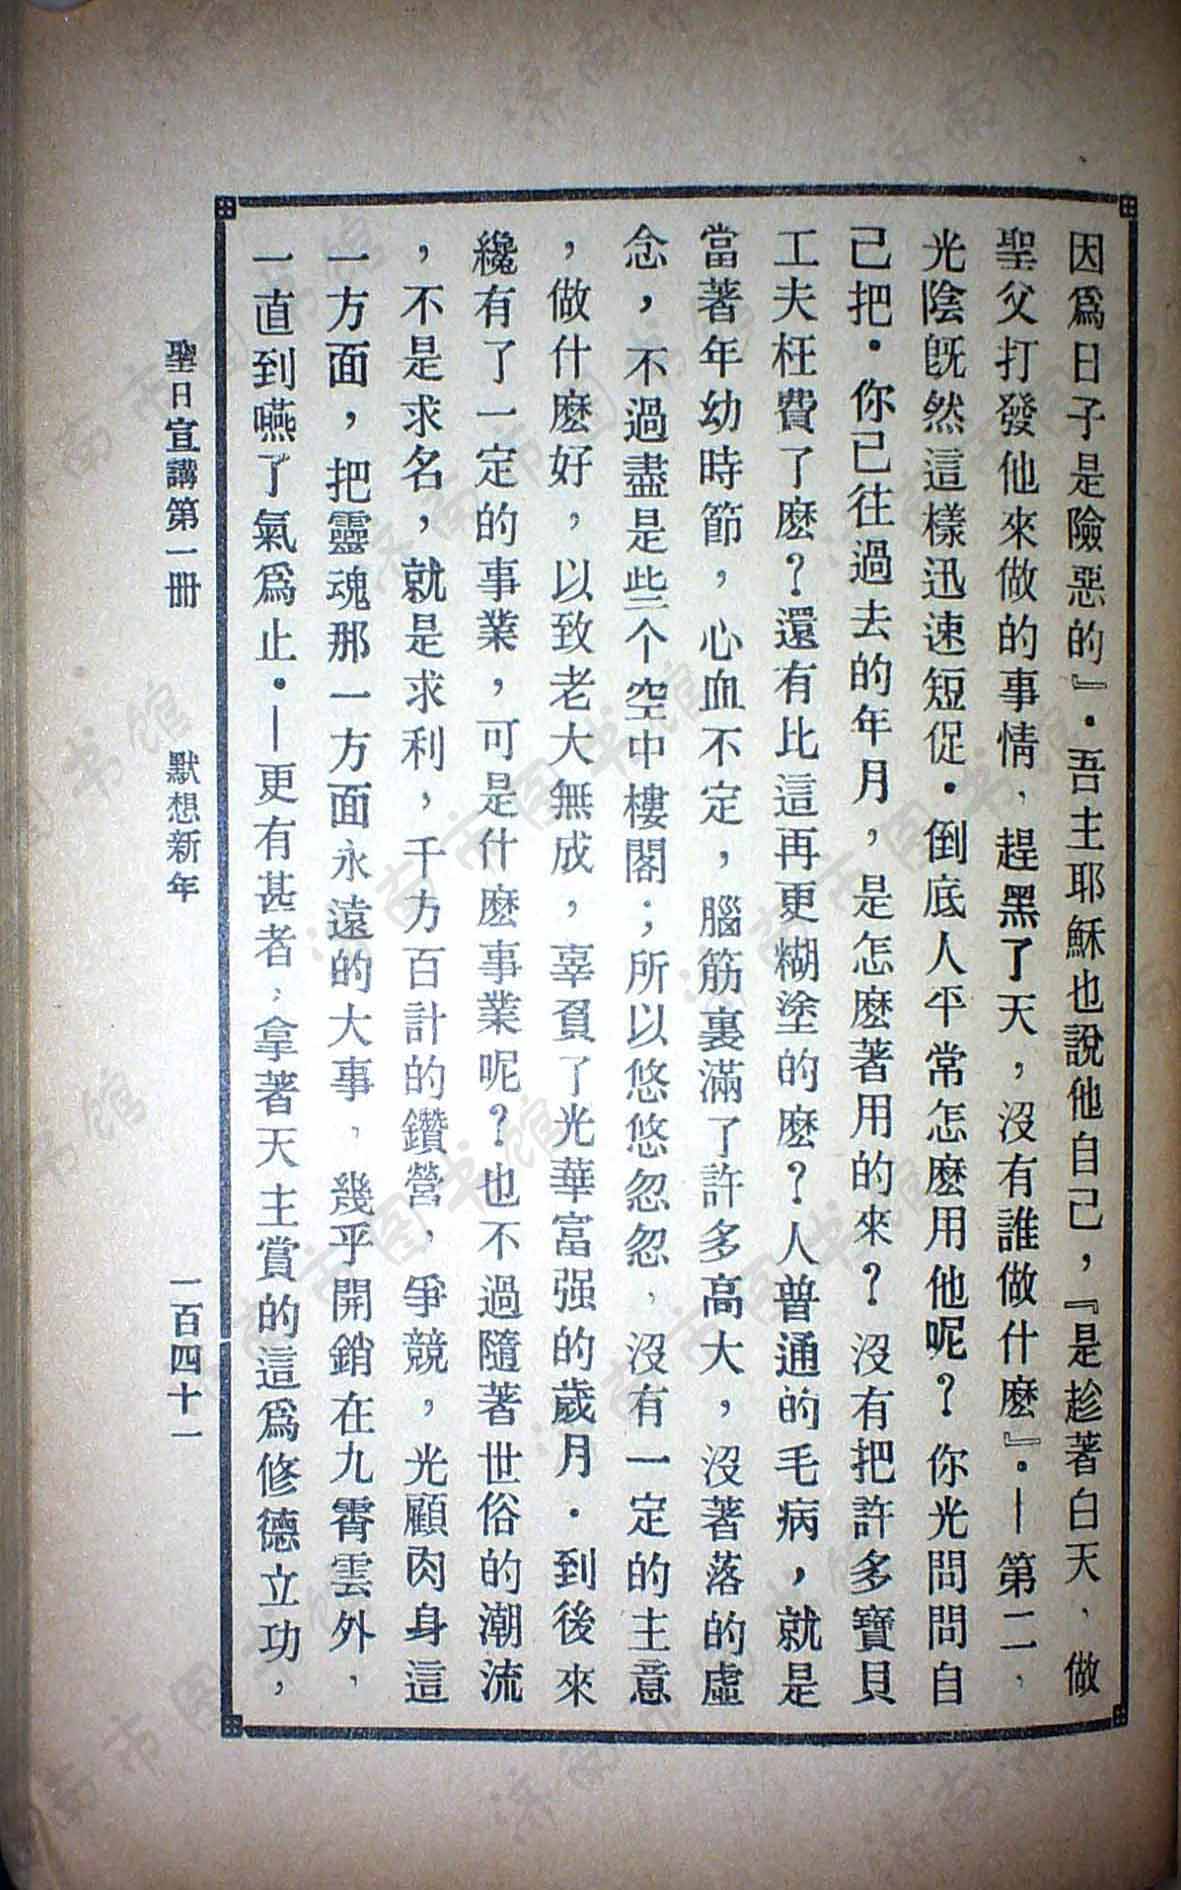 因爲日子是險惡的』．吾主耶穌也說他自己，『是趁著白天，做
聖父打發他來做的事情，趕黑了天，沒有誰做什麽』．—第二，
光陰旣然這樣迅速短促．倒底人平常怎麽用他呢？你光問問自
己把．你已往過去的年月，是怎麽著用的來？沒有把許多寶貝
工夫枉費了麽？還有比這再更糊塗的麽？人普通的毛病，就是
當著年幼時節，心血不定，腦筋裏滿了許多高大，沒著落的虛
念，不過盡是些个空中樓閣；所以悠悠忽忽，沒有一定的主意
，做什麽好，以致老大無成，辜負了光華富强的歲月．到後來
纔有了一定的事業，可是什麽事業呢？也不過隨著世俗的潮流
，不是求名，就是求利，千方百計的鑽營，爭競，光顧肉身這
一方面，把靈魂那一方面永遠的大事，幾乎開銷在九霄雲外，
一直到嚥了氣爲止．—更有甚者，拿著天主賞的這爲修德立功，
聖日宣講第一册　默想新年　一百四十一
济南市图书馆